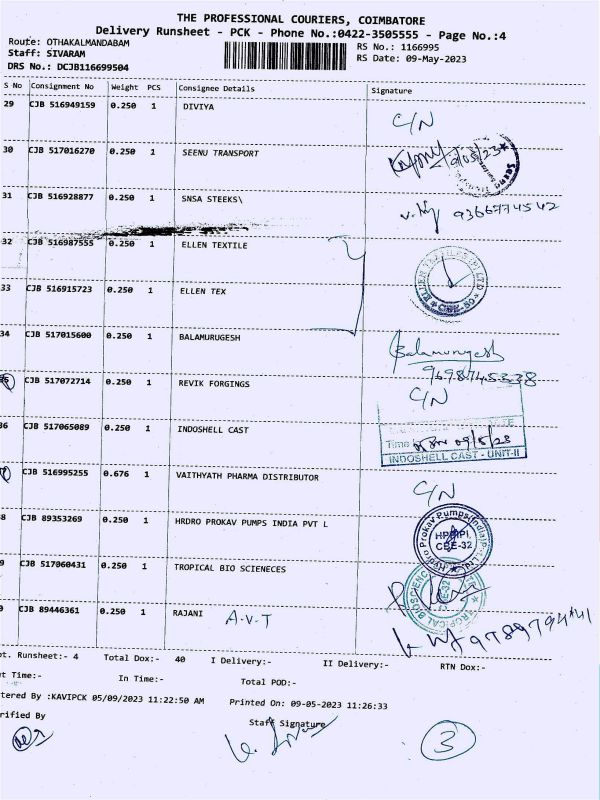 THE PROFESSIONAL COURIERS, COIMBATORE
Delivery Runsheet - PCK - Phone No.:0422-3505555 - Page No.:4
Route: OTHAKALMANDABAM RS No.: 1166995
Staff: SIVARAM RS Date: 09-May-2023
DRS No.: DCJB116699504
S No Consignment No Weight PCS Consignee Details Signature
29 CJB 516949159 0.250 1 DIVIYA C/N
30 CJB 517016270 0.250 1 SEENU TRANSPORT
31 CJB 516928877 0.250 1 SNSA STEEKS\ 9366774542
32 CJB 516987555 0.250 1 ELLEN TEXTILE
33 CJB 516915723 0.250 1 ELLEN TEX CBE-50
34 CJB 517015600 0.250 1 BALAMURUGESH Balamurugesh
9698745338
CJB 517072714 0.250 1 REVIK FORGINGS C/N
36 CJB 517065089 0.250 1 INDOSHELL CAST Time 09/5/23
INDOSHELL CAST - UNIT-II
CJB 516995255 0.676 1 VAITHYATH PHARMA DISTRIBUTOR C/N
8 CJB 89353269 0.250 1 HRDRO PROKAV PUMPS INDIA PVT L Hydro Prokav Pumps(India)
HPPIPL
CBE-32
9 CJB 517060431 0.250 1 TROPICAL BIO SCIENECES TROPICAL BIOSCIENCE
0 CJB 89446361 0.250 1 RAJANI A.V.T
ot. Runsheet:- 4 Total Dox:- 40 I Delivery:- II Delivery:- RTN Dox:-
ut Time:- In Time:- Total POD:-
tered By :KAVIPCK 05/09/2023 11:22:50 AM Printed On: 09-05-2023 11:26:33
rified By Staff Signature
3